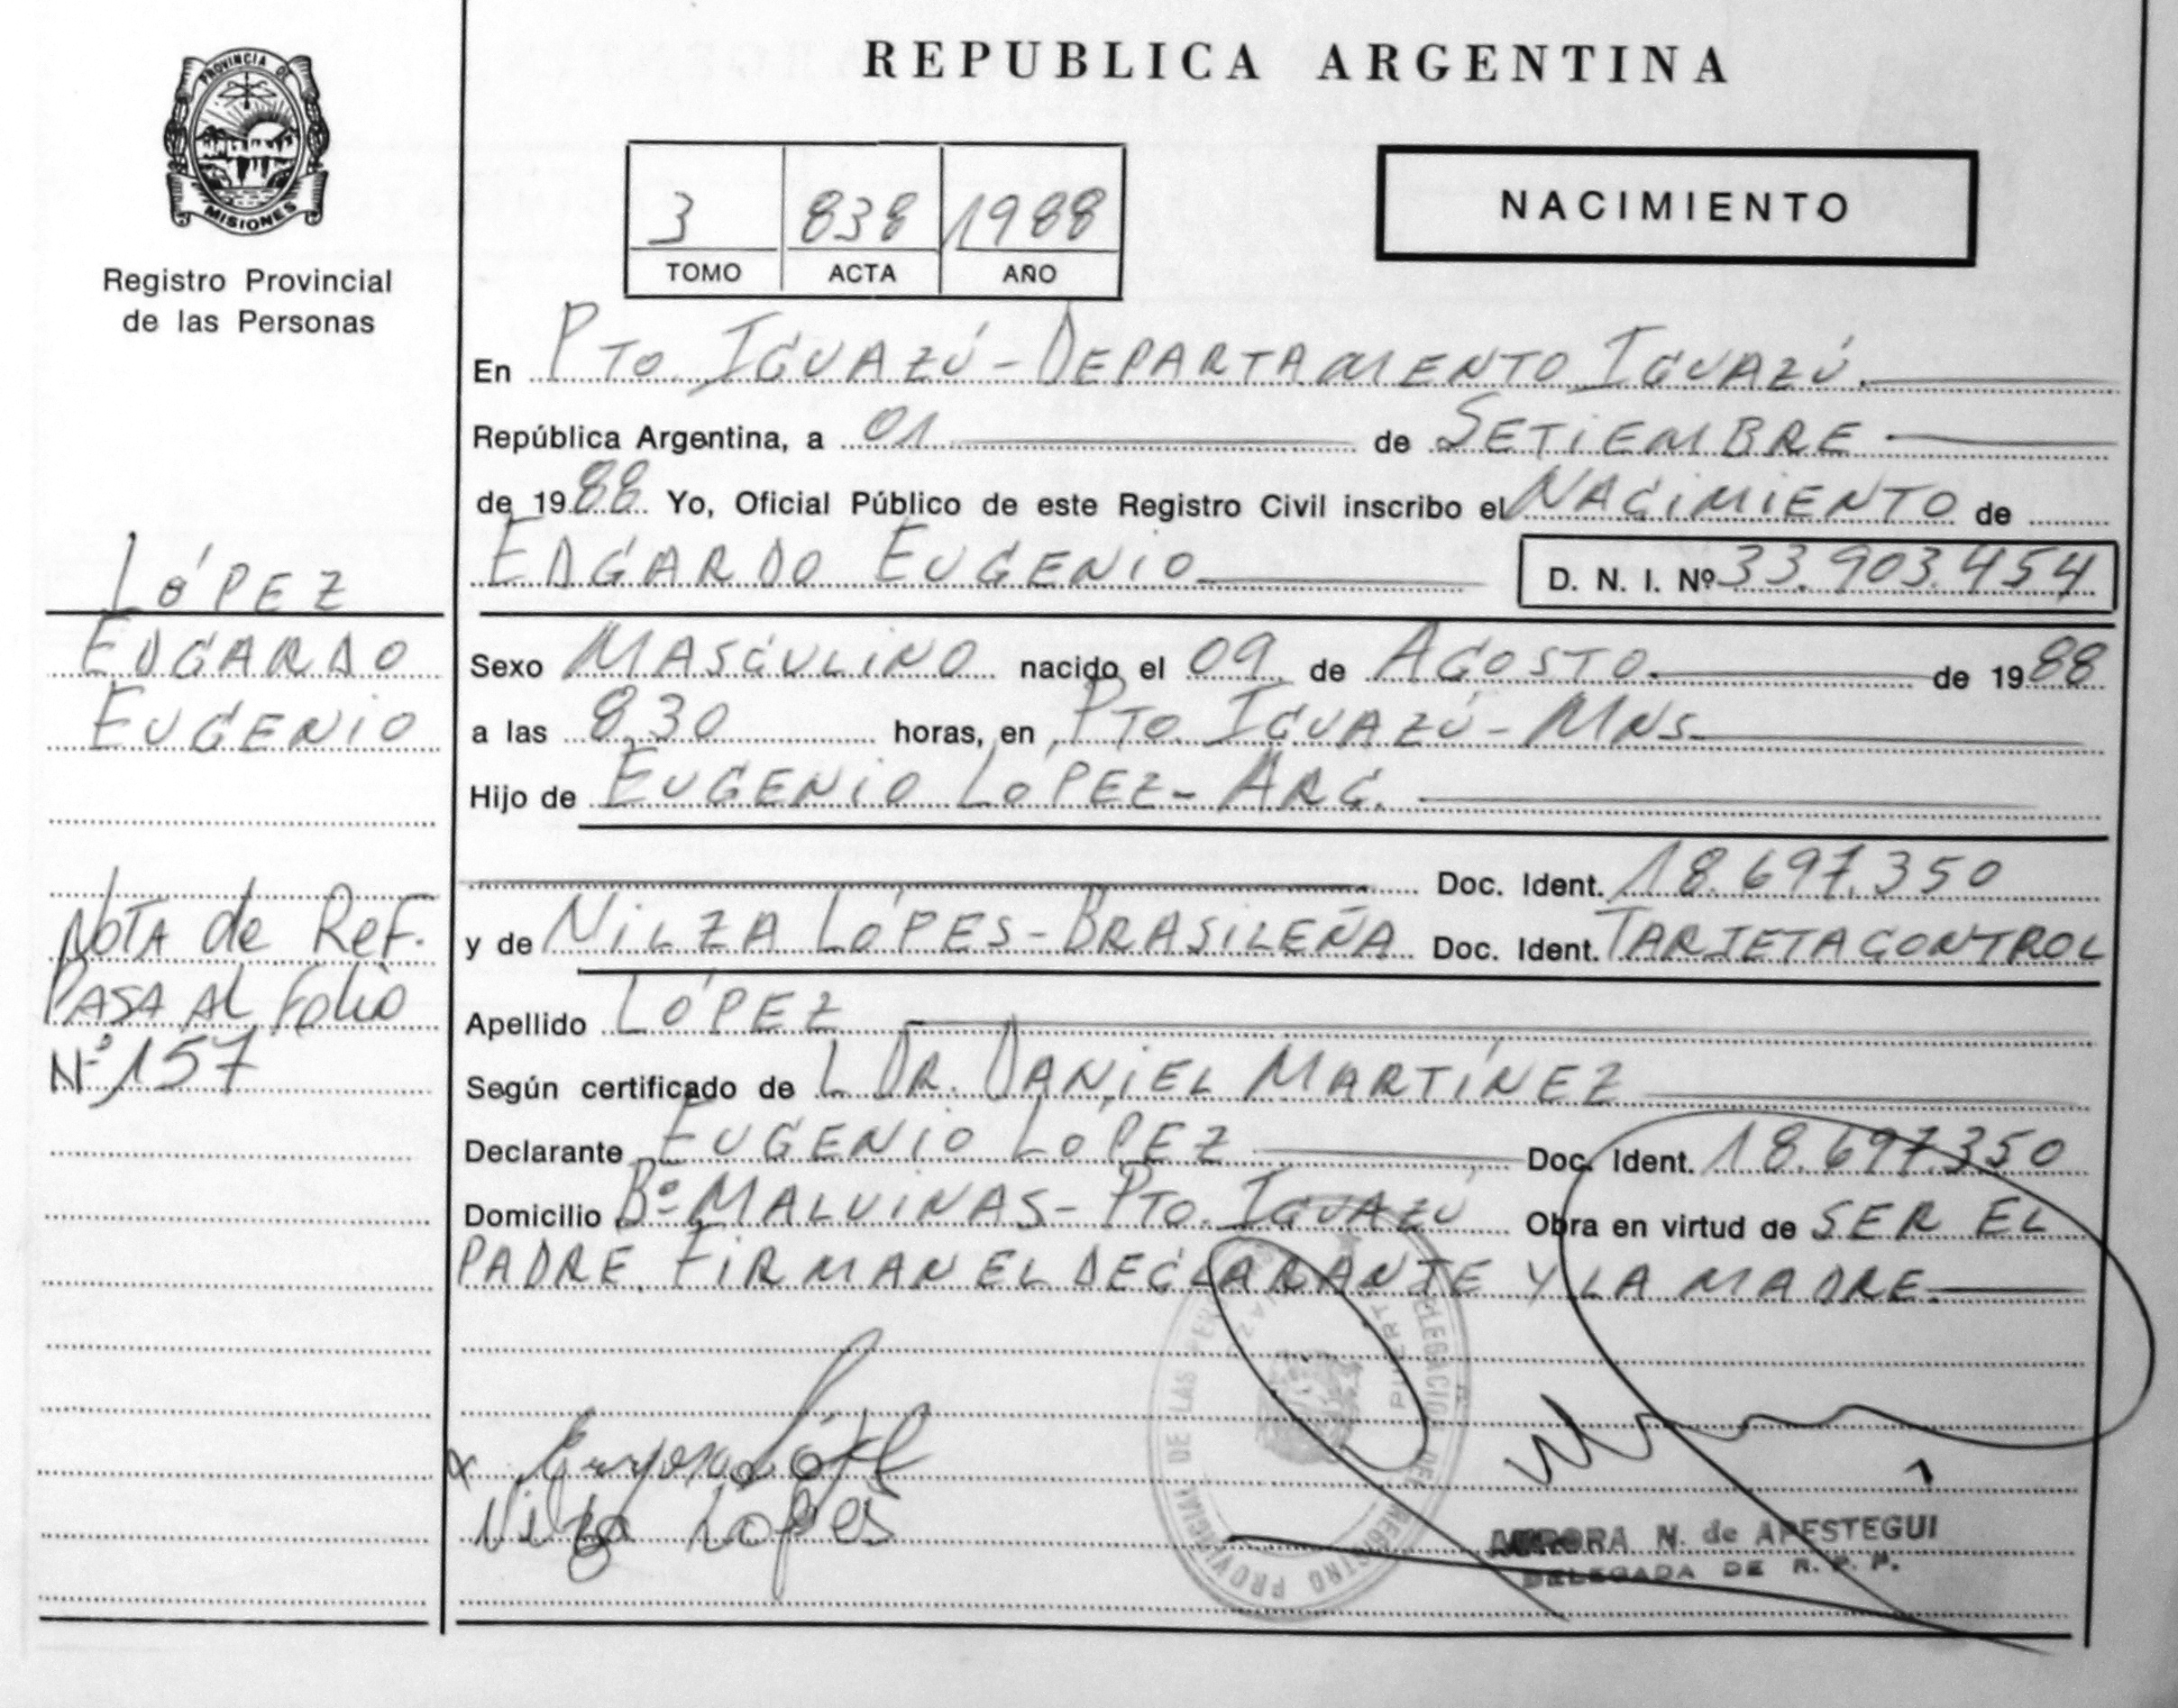 REPUBLICA ARGENTINA
PROVINCIA DE
MISIONES
Registro Provincial
de las Personas
3 838 1988
TOMO ACTA AÑO
NACIMIENTO
En PTO. IGUAZÚ - DEPARTAMENTO IGUAZÚ.
República Argentina, a 01 de SETIEMBRE
de 1988 Yo, Oficial Público de este Registro Civil inscribo el NACIMIENTO de
EDGARDO EUGENIO D. N. I. Nº 33.903.454
Sexo MASCULINO nacido el 09 de AGOSTO de 1988
a las 8.30 horas, en PTO. IGUAZÚ - MNS.
Hijo de EUGENIO LÓPEZ - ARG.
Doc. Ident. 18.697.350
y de NILZA LÓPES - BRASILEÑA Doc. Ident. TARJETA CONTROL
Apellido LÓPEZ
Según certificado de L DR. DANIEL MARTÍNEZ
Declarante EUGENIO LÓPEZ Doc. Ident. 18.697.350
Domicilio Bº MALVINAS - PTO. IGUAZÚ Obra en virtud de SER EL
PADRE. FIRMAN EL DECLARANTE Y LA MADRE.
LÓPEZ
EDGARDO
EUGENIO
NOTA de ReF.
PASA AL Folio
Nº 157
Nilza Lopes
DELEGACION DEL REGISTRO PROVINCIAL DE LAS
AURORA N. de APESTEGUI
DELEGADA DE R. P. P.